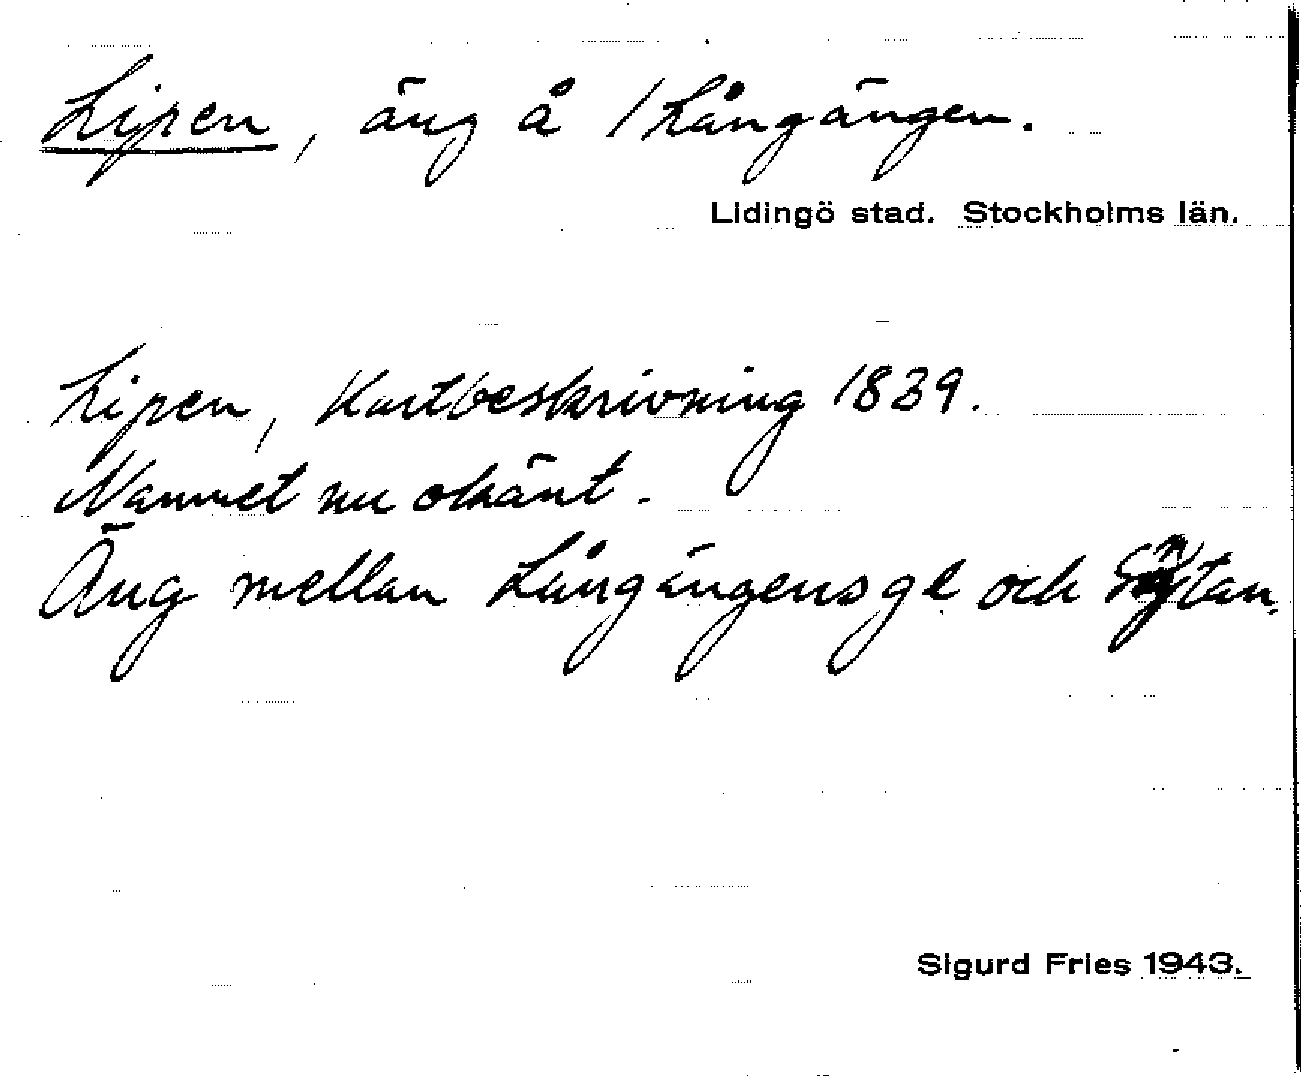 Lipen, äng å /Långängen.
Lidingö stad. Stockholms län.
Lipen, Kartbeskrivning 1839.
Namnet nu okänt.
Äng mellan Långängens gl och
Sigurd Fries 1943.